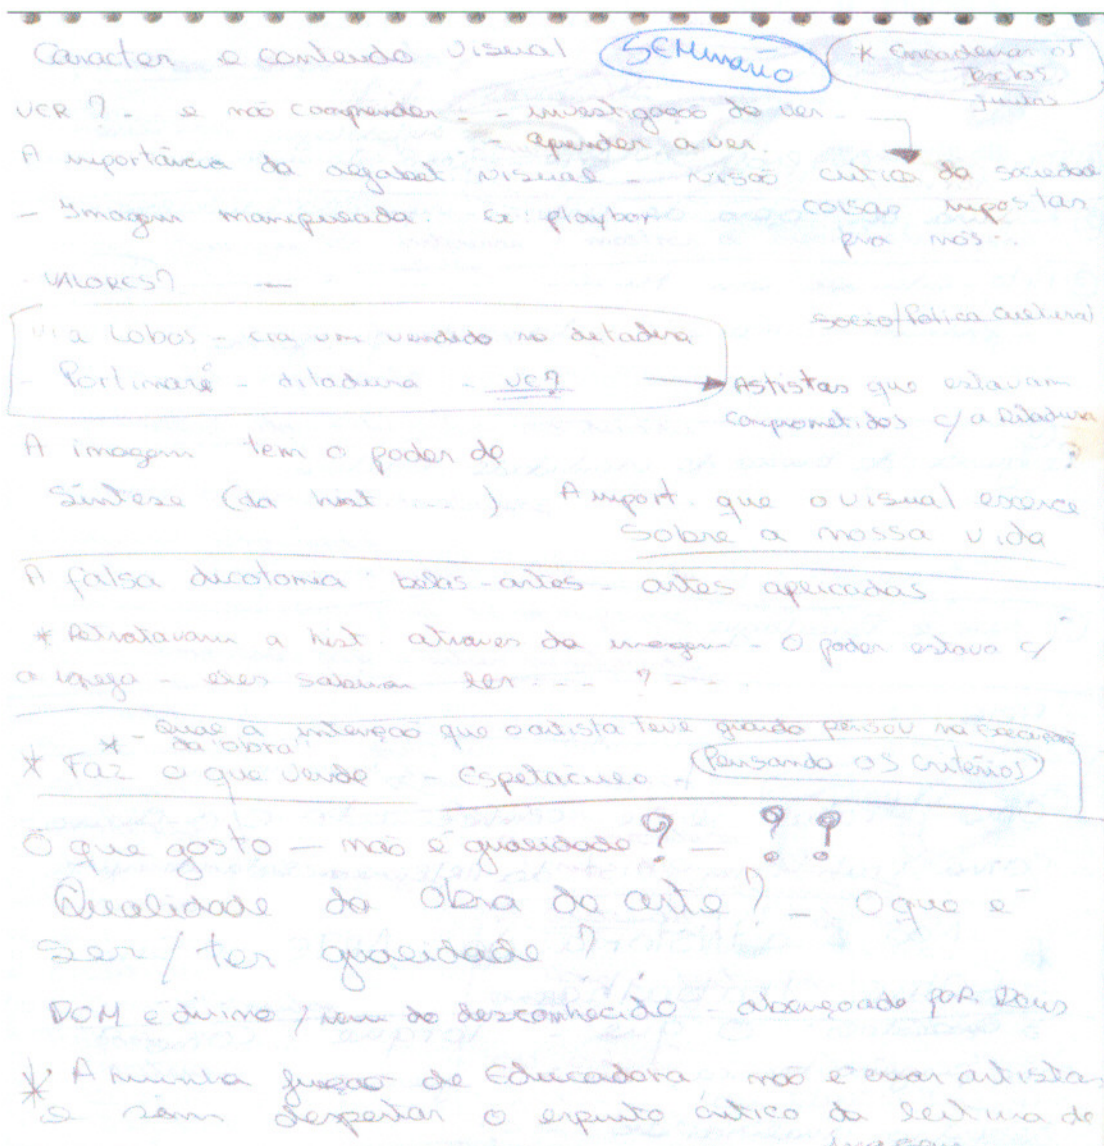 Caracter e conteudo visual SEMINáRIO * Encadernar os
textos
juntos
VER ? - e não compreender - - investigação do ver -
- aprender a ver.
A importância da alfabet visual - visão critica da sociedade
- Imagem manipulada Ex: playboy coisas impostas
pra nós.
- VALORES? —
Socio/Politica Cultural
Vila Lobos - era um vendido na ditadura
- Portinari - ditadura - VER? Artistas que estavam
comprometidos c/ a Ditadura
?
A imagem tem o poder de
Síntese (da hist ....) A import. que o visual exerce
Sobre a nossa vida
A falsa dicotomia: belas-artes - artes aplicadas
* Retratavam a hist. atraves da imagem - O poder estava c/
a igreja - eles sabiam ler - - - ? - - .
* - Qual a intenção que o artista teve quando pensou na execução
da "obra"
* Faz o que vende - Espetaculo - (Pensando os critérios)
O que gosto — não é qualidade ? — ? ?
Qualidade da Obra de arte ? - O que é
ser / ter qualidade ?
DOM é divino / vem do desconhecido - abençoado por Deus
* A minha função de Educadora não é criar artistas
e sim despertar o espirito critico da leitura de
imagem